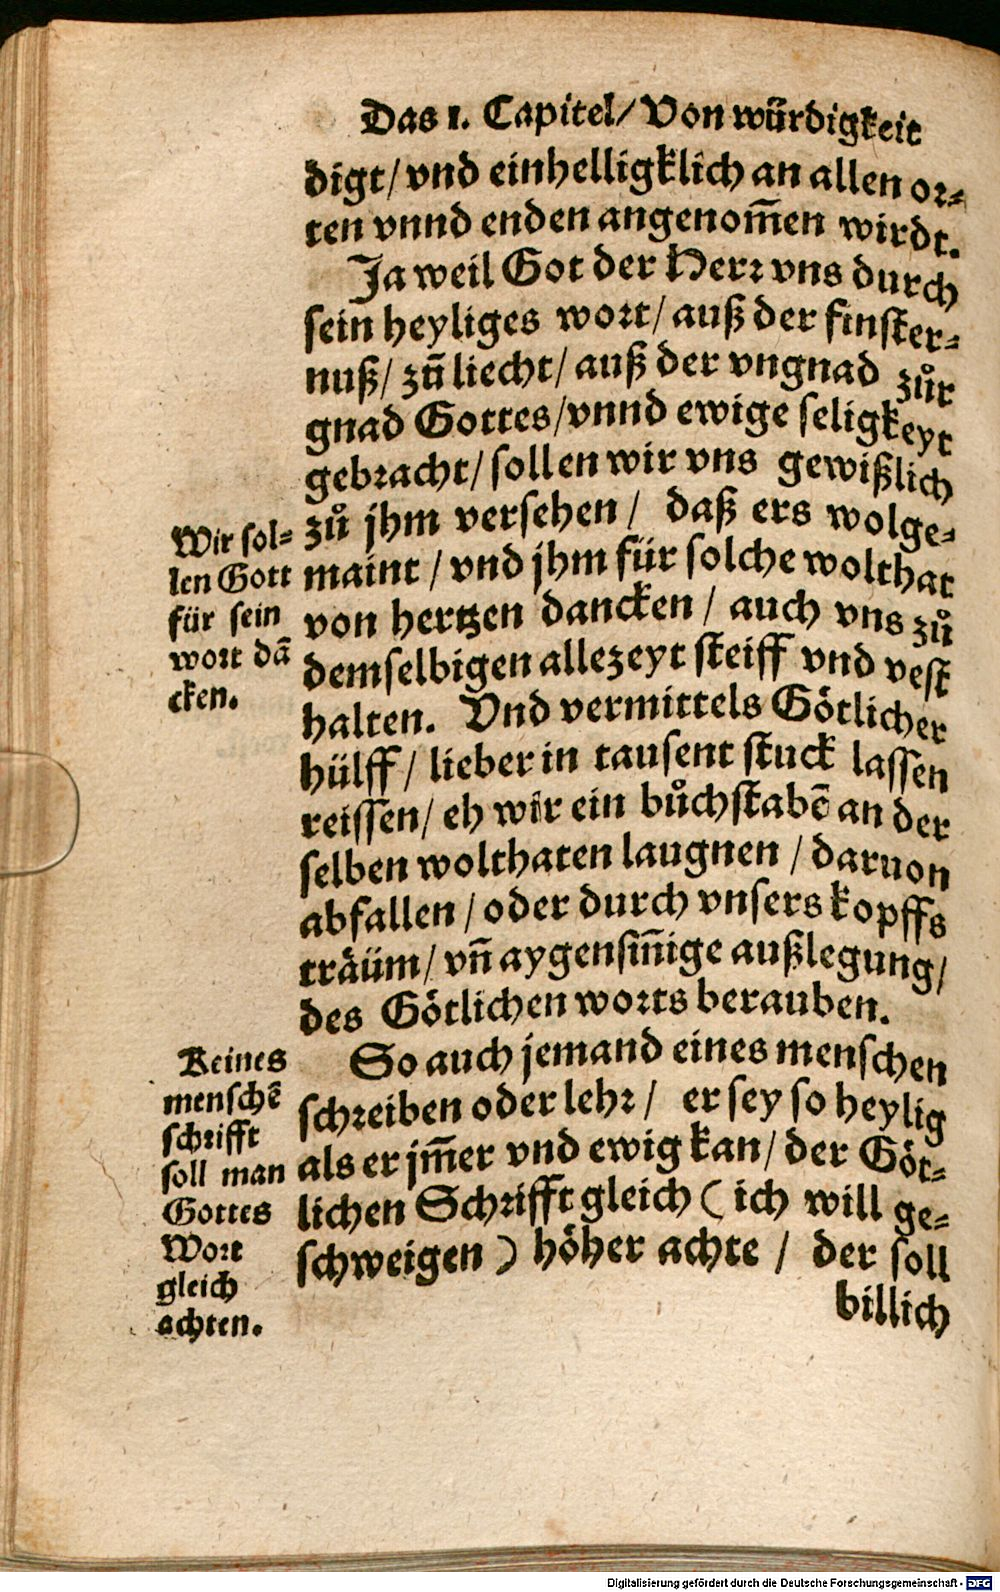 Das 1. Capitel/ Von würdigkeit
digt/ vnd einhelligklich an allen or⸗
ten vnnd enden angenom̄en wirdt.
Ja weil Got der Herr vns durch
sein heyliges wort/ auß der finster⸗
nuß/ zū liecht/ auß der vngnad zůr
gnad Gottes/ vnnd ewige seligkeyt
gebracht/ sollen wir vns gewißlich
zů jhm versehen/ daß ers wolge⸗
maint/ vnd jhm für solche wolthat
von hertzen dancken/ auch vns zů
demselbigen allezeyt steiff vnd vest
halten. Vnd vermittels Götlicher
hülff/ lieber in tausent stuck lassen
reissen/ eh wir ein bůchstabē an der
selben wolthaten laugnen/ daruon
abfallen/ oder durch vnsers kopffs
träüm/ vn̄ aygensin̄ige außlegung/
des Götlichen worts berauben.
So auch jemand eines menschen
schreiben oder lehr/ er sey so heylig
als er jm̄er vnd ewig kan/ der Göt⸗
lichen Schrifft gleich (ich will ge⸗
schweigen) höher achte/ der soll
billich
Wir sol⸗
len Gott
für sein
wort dā
cken.
Keines
menschē
schrifft
soll man
Gottes
Wort
gleich
achten.
Digitalisierung gefördert durch die Deutsche Forschungsgemeinschaft - DFG